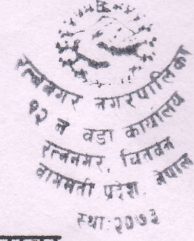 रत्ननगर नगरपालिका
१२ नं वडा कार्यालय
रत्ननगर, चितवन
बागमती प्रदेश, नेपाल
स्था: २०७३